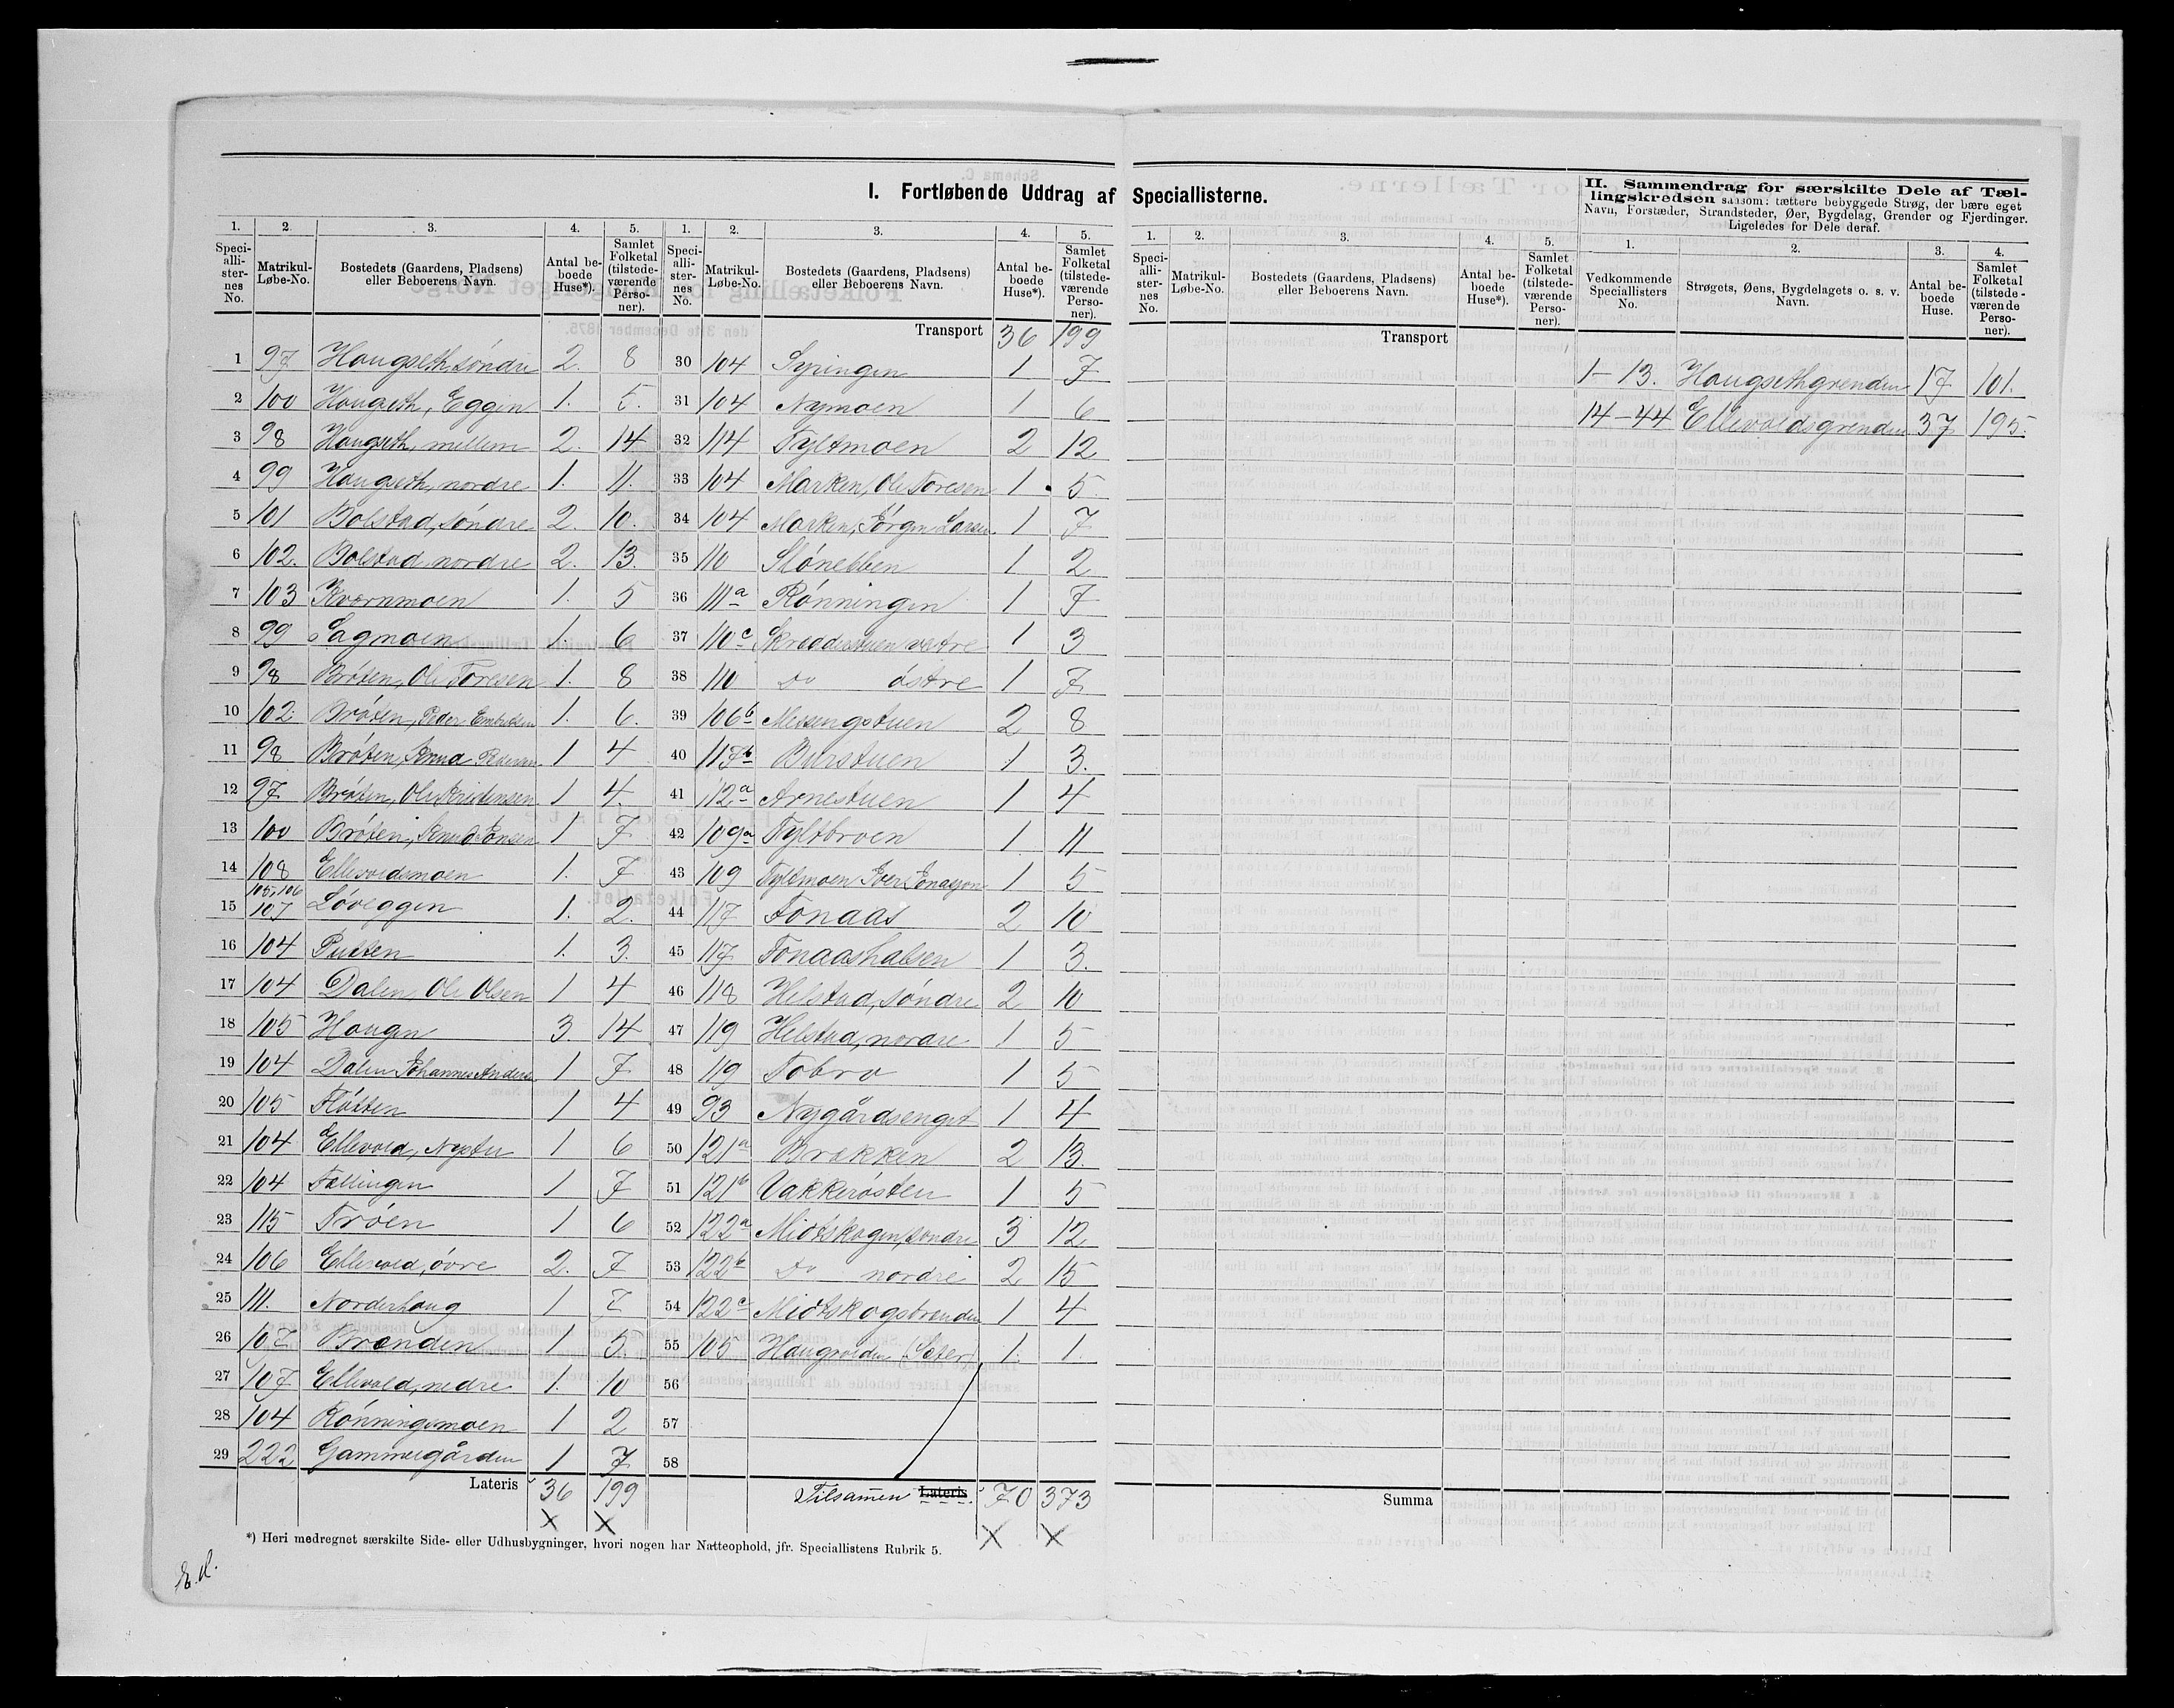 I. Fortløbende Uddrag af Speciallisterne.
II. Sammendrag for særskilte Dele af Tæl-
lingskredsen saasom: tættere bebyggede Strøg, der bære eget
Navn, Forstæder, Strandsteder, Øer, Bygdelag, Grender og Fjerdinger.
Ligeledes for Dele deraf.
1. 2. 3. 4. 5. 1. 2. 3. 4. 5. 1. 2. 3. 4. 5. 1. 2. 3. 4.
Speciallisternes No. Matrikul-Løbe-No. Bostedets (Gaardens, Pladsens) eller Beboerens Navn. Antal beboede Huse*). Samlet Folketal (tilstedeværende Personer).
Speciallisternes No. Matrikul-Løbe-No. Bostedets (Gaardens, Pladsens) eller Beboerens Navn. Antal beboede Huse*). Samlet Folketal (tilstedeværende Personer).
Speciallisternes No. Matrikul-Løbe-No. Bostedets (Gaardens, Pladsens) eller Beboerens Navn. Antal beboede Huse*). Samlet Folketal (tilstedeværende Personer).
Vedkommende Speciallisters No. Strøgets, Øens, Bygdelagets o. s. v. Navn. Antal beboede Huse. Samlet Folketal (tilstedeværende Personer).
1 97 Haugseth, söndre 2. 8
2 100 Haugseth, Eggen 1. 5.
3 98 Haugseth, mellem 2. 14
4 99 Haugseth, nordre 1. 11.
5 101 Bolstad, söndre 2. 10.
6 102. Bolstad nordre 2. 13.
7 103 Kvernmoen 1. 5
8 99 Sagmoen 1. 6
9 98 Bröten, Ole Toresen 1. 8
10 102. Bröten, Peder Embretsen 1. 6.
11 98 Bröten, 1 4
12 97 Bröten, Ole Kristensen 1 4.
13 100 Bröten, Knud Jonsen 1 7
14 108 Ellevoldsmoen 1. 7
15 105, 106 107 Löveggen 1. 2.
16 104 Putten 1. 3.
17 104 Dalen Ole Olsen 1 4
18 105 Haugen 3. 14
19 104 Dalen Johannes Anders. 1 7
20 105 Flötten 1 4
21 104 Ellevold, Nystu 1 6
22 104 Fallingen 1 7
23 115 Tröen 1 6
24 106 Ellevold, övre 2. 7
25 111. Norderhaug 1 7
26 107 Brænden 1 5
27 107 Ellevold, nedre 1. 10
28 104 Rönningsmoen 1 2
29 222 Gammelgården 1 7
Lateris 36 199
X X
Transport 36 199
30 104 Syringen 1 7
31 104 Nymoen 1 6
32 114 Tyltmoen 2 12
33 104 Marken, Ole Toresen 1. 5.
34 104 Marken, Jörgen Larsen 1 7
35 110 Slönebben 1 2
36 111a Rönningen 1 7
37 110c Skrædderstuen vestre 1 3
38 110 Do östre 1 7
39 106b Messengstuen 2 8
40 117b Burstuen 1 3.
41 112a Arnestuen 1 4
42 109a Tyltbroen 1 11
43 109 Tyltmoen Iver Jonasson 1 5
44 117 Tonaas 2 10
45 117 Tonaashalsen 1 3.
46 118 Helstad, söndre 2 10
47 119 Helstad, nordre 1 5
48 119 Tobro 1 5
49 93 Nygårdsenget 1 4
50 121a Brækken 2 13.
51 121b Vakkerösten 1 5
52 122a Midtskogen, söndre 3 12
53 122b Do nordre 2 15
54 122c Midtskogstrenden 1 4
55 105 Haugvolden (Sæter) 1. 1.
56
57
58
Tilsammen Lateris 70 373
X X
Transport
Summa
1-13. Haugsethgrenden 17 101.
14-44 Ellevoldsgrenden 37 195.
*) Heri medregnet særskilte Side- eller Udhusbygninger, hvori nogen har Natteophold, jfr. Speciallistens Rubrik 5.